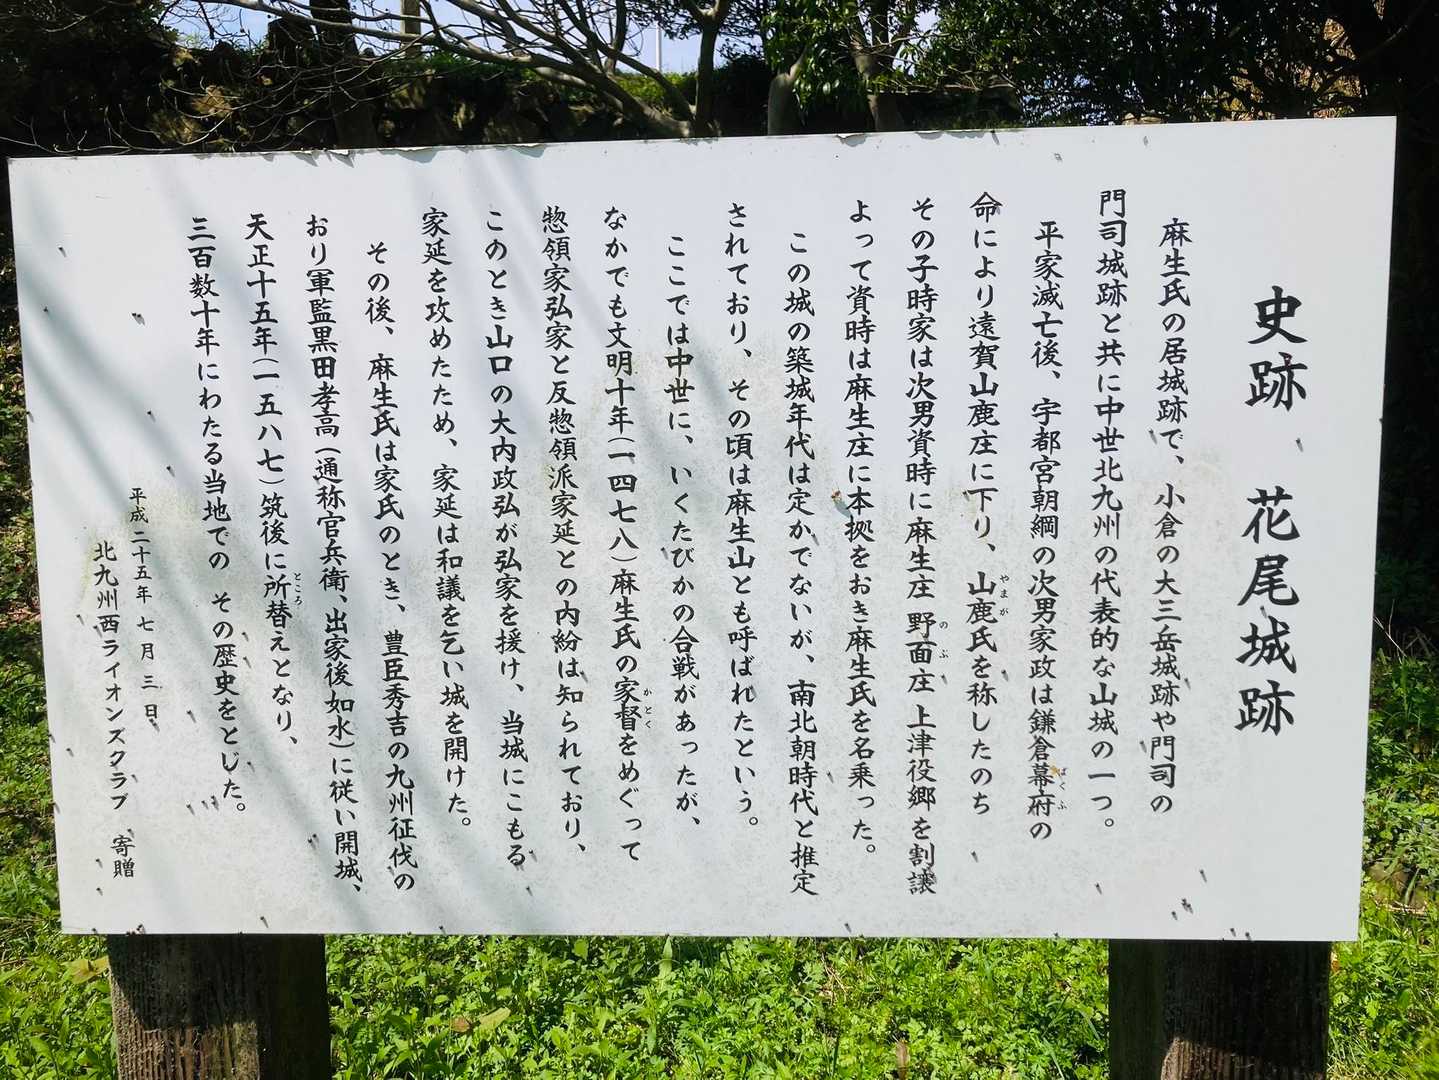 史跡 花尾城跡
麻生氏の居城跡で、小倉の大三岳城跡や門司の
門司城跡と共に中世北九州の代表的な山城の一つ。
平家滅亡後、宇都宮朝綱の次男家政は鎌倉幕府の
ばくふ
命により遠賀山鹿庄に下り、山鹿氏を称したのち
やまが
その子時家は次男資時に麻生庄 野面庄 上津役郷を割譲
のぶ
よって資時は麻生庄に本拠をおき麻生氏を名乗った。
この城の築城年代は定かでないが、南北朝時代と推定
されており、その頃は麻生山とも呼ばれたという。
ここでは中世に、いくたびかの合戦があったが、
なかでも文明十年(一四七八)麻生氏の家督をめぐって
かとく
惣領家弘家と反惣領派家延との内紛は知られており、
このとき山口の大内政弘が弘家を援け、当城にこもる
家延を攻めたため、家延は和議を乞い城を開けた。
その後、麻生氏は家氏のとき、豊臣秀吉の九州征伐の
おり軍監黒田孝高(通称官兵衛、出家後如水)に従い開城、
天正十五年(一五八七)筑後に所替えとなり、
ところ
三百数十年にわたる当地での その歴史をとじた。
平成二十五年 七月三日
北九州西ライオンズクラブ 寄贈